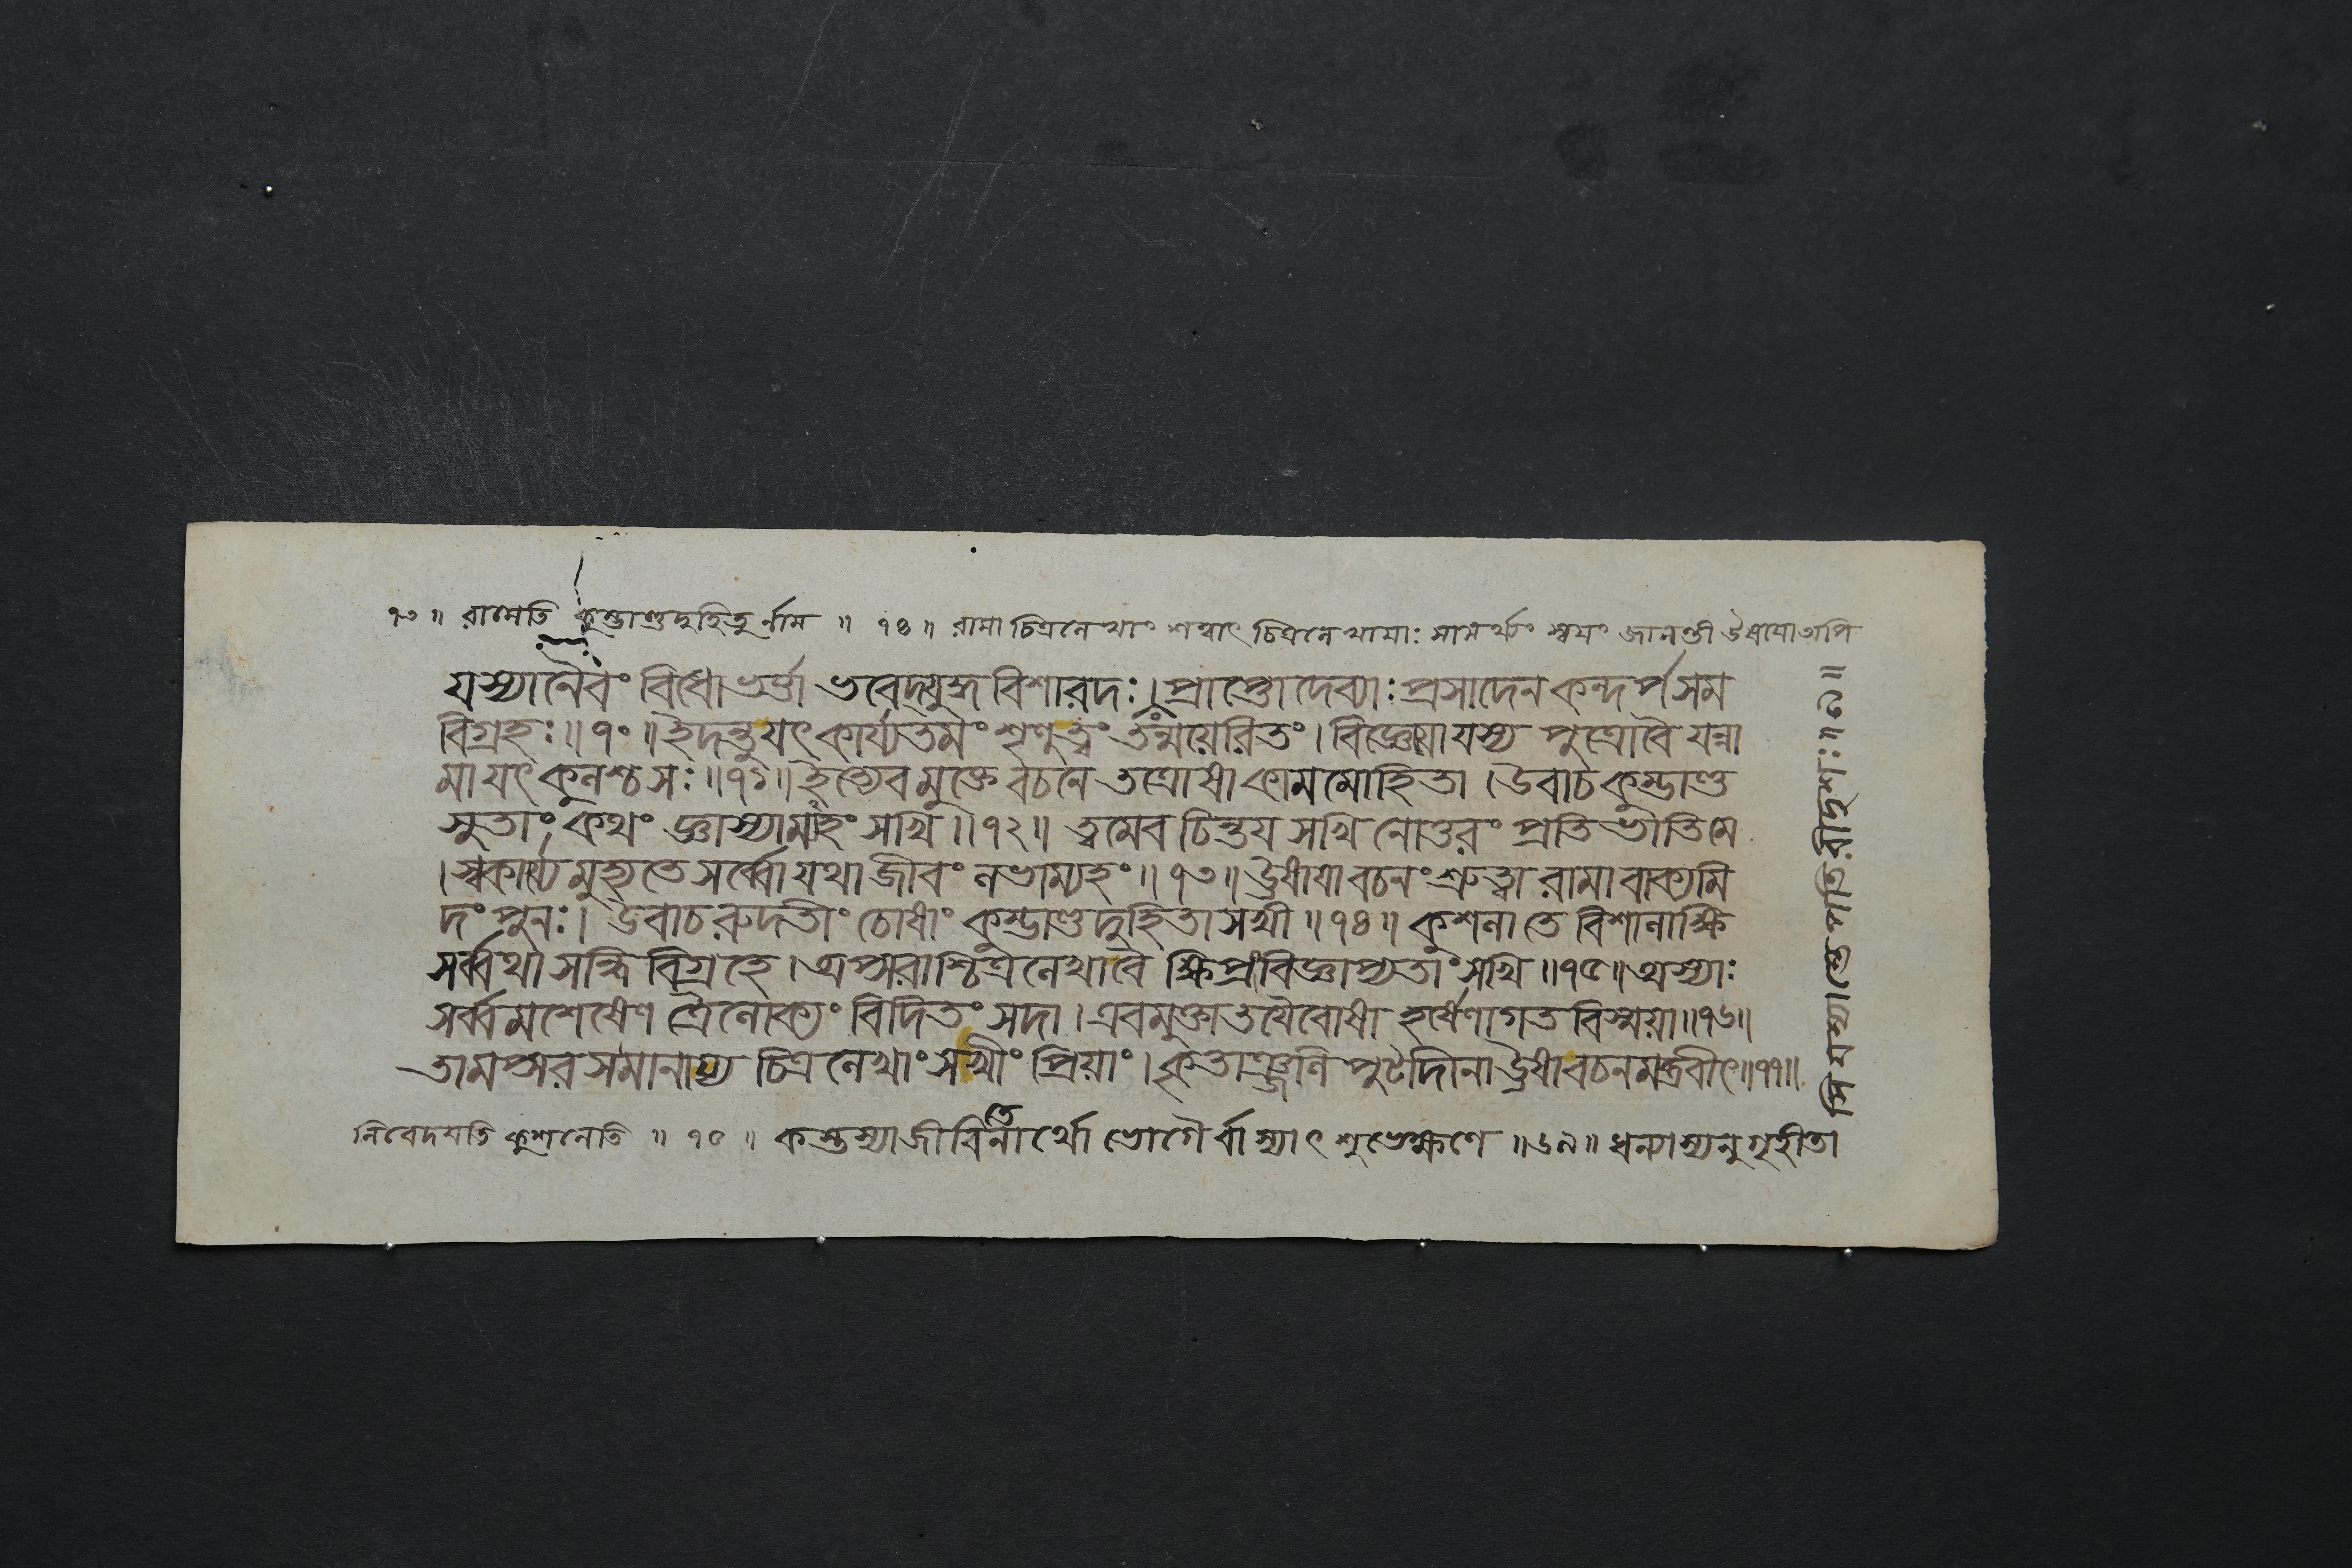 ৭৩ ॥ রামেতি কুম্ভাণ্ডদুহিতুর্নাম ॥ ৭৪ ॥ রামা চিত্রলেখাং শশ্বাৎ চিত্রলেখাযাঃ সামর্থ্যং স্বযং জানন্তী উষাযাঅপি
যস্যানৈবং বিধোভর্ত্তা ভবেদ্যুদ্ধবিশারদঃ। প্রাপ্তোদেব্যাঃ প্রসাদেন কন্দর্পসম
বিগ্রহঃ ॥ ৭০ ॥ ইদন্তুযৎকার্য্যতমং শৃণুত্বং তন্ময়েরিতং। বিজ্ঞেযোযস্য পুত্রোবৈ যন্না
মাযৎকুলশ্চসঃ ॥ ৭১ ॥ ইত্যেবমুক্তে বচনে তত্রোষাকামমোহিতা । উবাচ কুম্ভাণ্ড
সুতাং কথং জ্ঞাস্যামহং সখি ॥ ৭২ ॥ ত্বমেব চিন্তয সখি নোত্তরং প্রতিভাতিমে
। স্বকার্য্যে মুহ্যতে সর্ব্বোযথা জীবং লভাম্যহং ॥ ৭৩ ॥ উষাযাবচনং শ্রুত্বা রামাবাক্যমি
দং পুনঃ। উবাচ রুদতীং চোষাং কুম্ভাণ্ডদুহিতাসখী ॥ ৭৪ ॥ কুশলা তে বিশালাক্ষি
সর্ব্বথা সন্ধিবিগ্রহে । অপ্সরাশ্চিত্রলেখাবৈ ক্ষিপ্রংবিজ্ঞাপ্যতাং সখি ॥ ৭৫ ॥ অস্যাঃ
সর্ব্বমশেষেণ ত্রৈলোক্যং বিদিতং সদা । এবমুক্তাতথৈবোষা হর্ষেণাগতবিস্ময়া ॥ ৭৬ ॥
তামপ্সরসমানায্য চিত্রলেখাং সখীং প্রিয়াং। কৃতাঞ্জলিপুটাদীনা উষাবচনমব্রবীৎ ॥ ৭৭ ॥
নিবেদযতি কুশলেতি ॥ ৭৫ ॥ কস্তস্যাজীবিতেনার্থো ভোগৈর্বাস্যাৎ শুভেক্ষণে ॥ ৬৯ ॥ ধন্যাস্যনুগৃহীতা